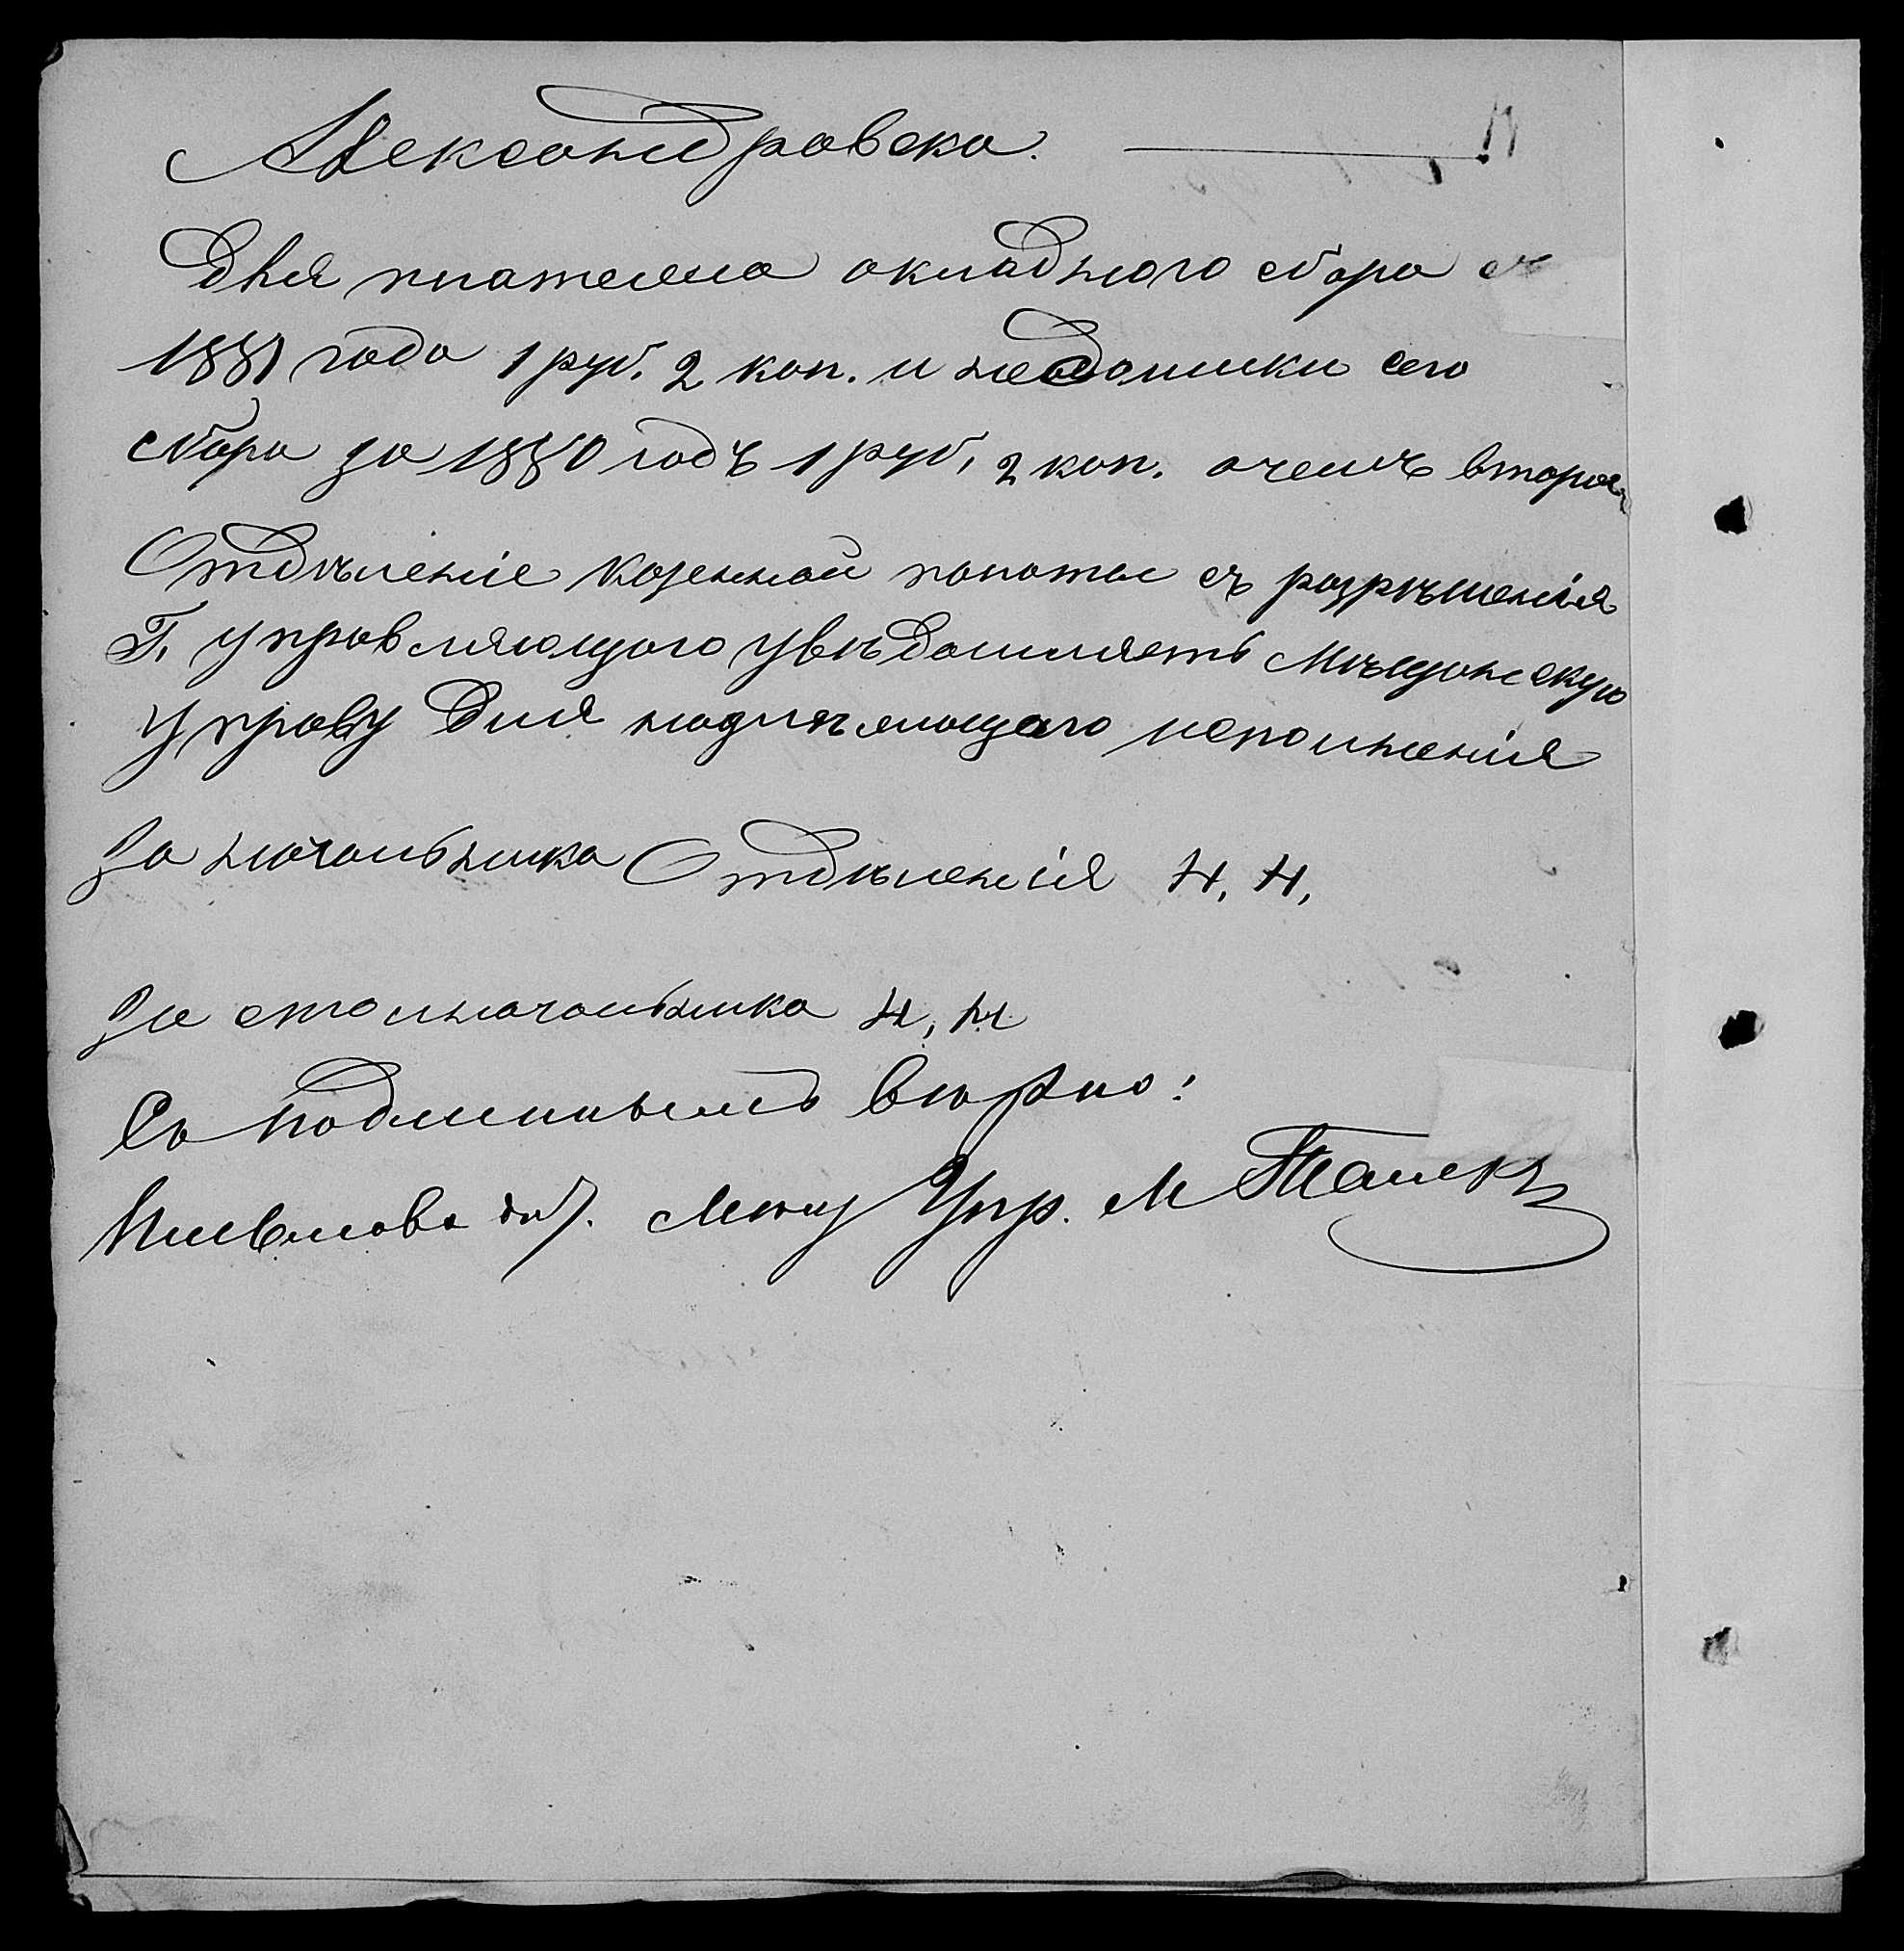 Александровска.
Для платежа окладного сбора съ
1881 года 1 руб. 2 коп. и недоимки сего
сбора за 1880 годъ 1 руб, 2 коп. очемъ второе
Отдѣленіе Казенной палаты съ разрѣшенія
Г. управляющаго увѣдомляетъ Мѣщанскую
управу для надлѣжащаго исполненія
За начальника Отдѣленія Н. Н,
За столоначальника Н, Н
Съ подлиннымъ вѣрно:
Упр. М